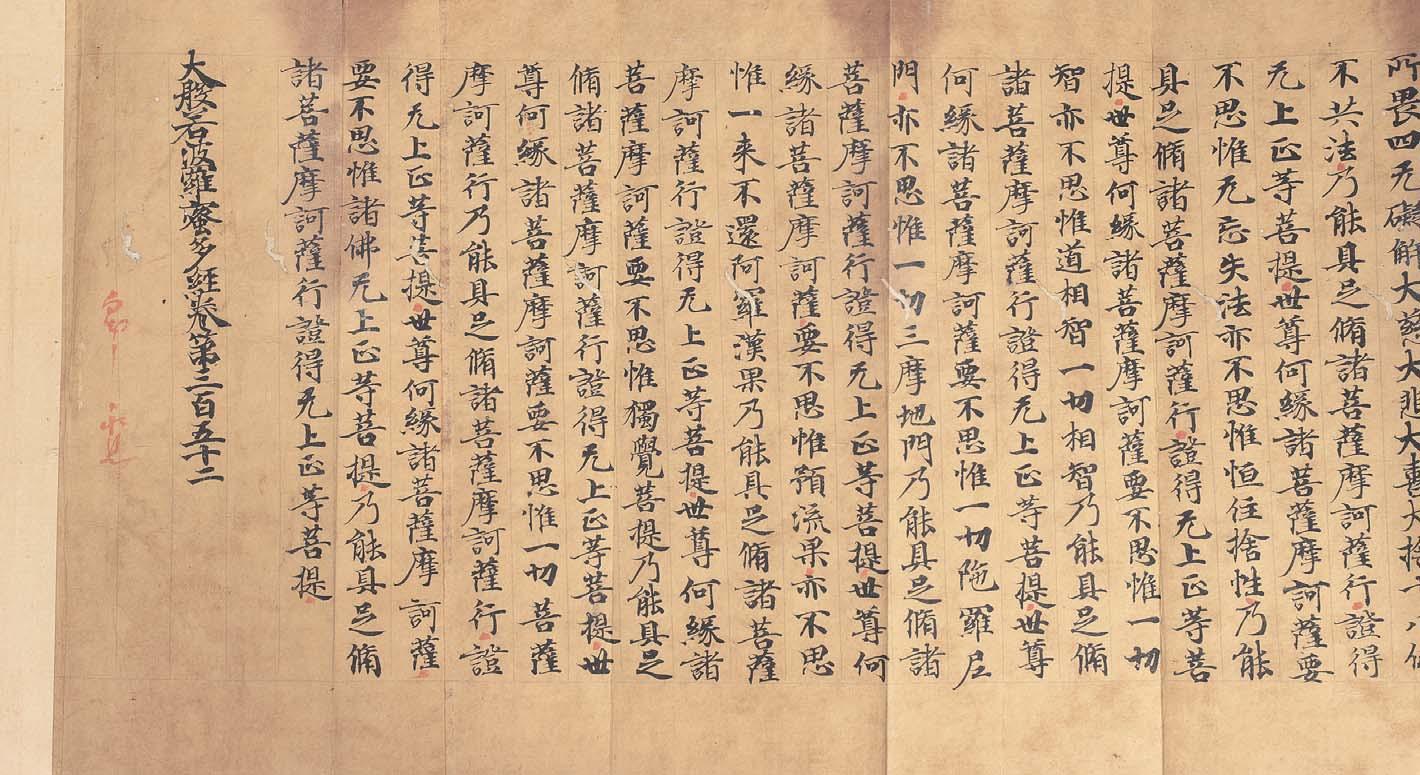 所畏四无礙解大慈大悲大喜大捨十八佛
不共法乃能具足脩諸菩薩摩訶薩行證得
无上正等菩提世尊何緣諸菩薩摩訶薩要
不思惟无忘失法亦不思惟恒住捨性乃能
具足脩諸菩薩摩訶薩行證得无上正等菩
提世尊何緣諸菩薩摩訶薩要不思惟一切
智亦不思惟道相智一切相智乃能具足脩
諸菩薩摩訶薩行證得无上正等菩提世尊
何緣諸菩薩摩訶薩要不思惟一切陁羅尼
門亦不思惟一切三摩地門乃能具足脩諸
菩薩摩訶薩行證得无上正等菩提世尊何
緣諸菩薩摩訶薩要不思惟預流果亦不思
惟一来不還阿羅漢果乃能具足脩諸菩薩
摩訶薩行證得无上正等菩提世尊何緣諸
菩薩摩訶薩要不思惟獨覺菩提乃能具足
脩諸菩薩摩訶薩行證得无上正等菩提世
尊何緣諸菩薩摩訶薩要不思惟一切菩薩
摩訶薩行乃能具足脩諸菩薩摩訶薩行證
得无上正等菩提世尊何緣諸菩薩摩訶薩
要不思惟諸佛无上正等菩提乃能具足脩
諸菩薩摩訶薩行證得无上正等菩提
大般若波羅蜜多經卷第三百五十二